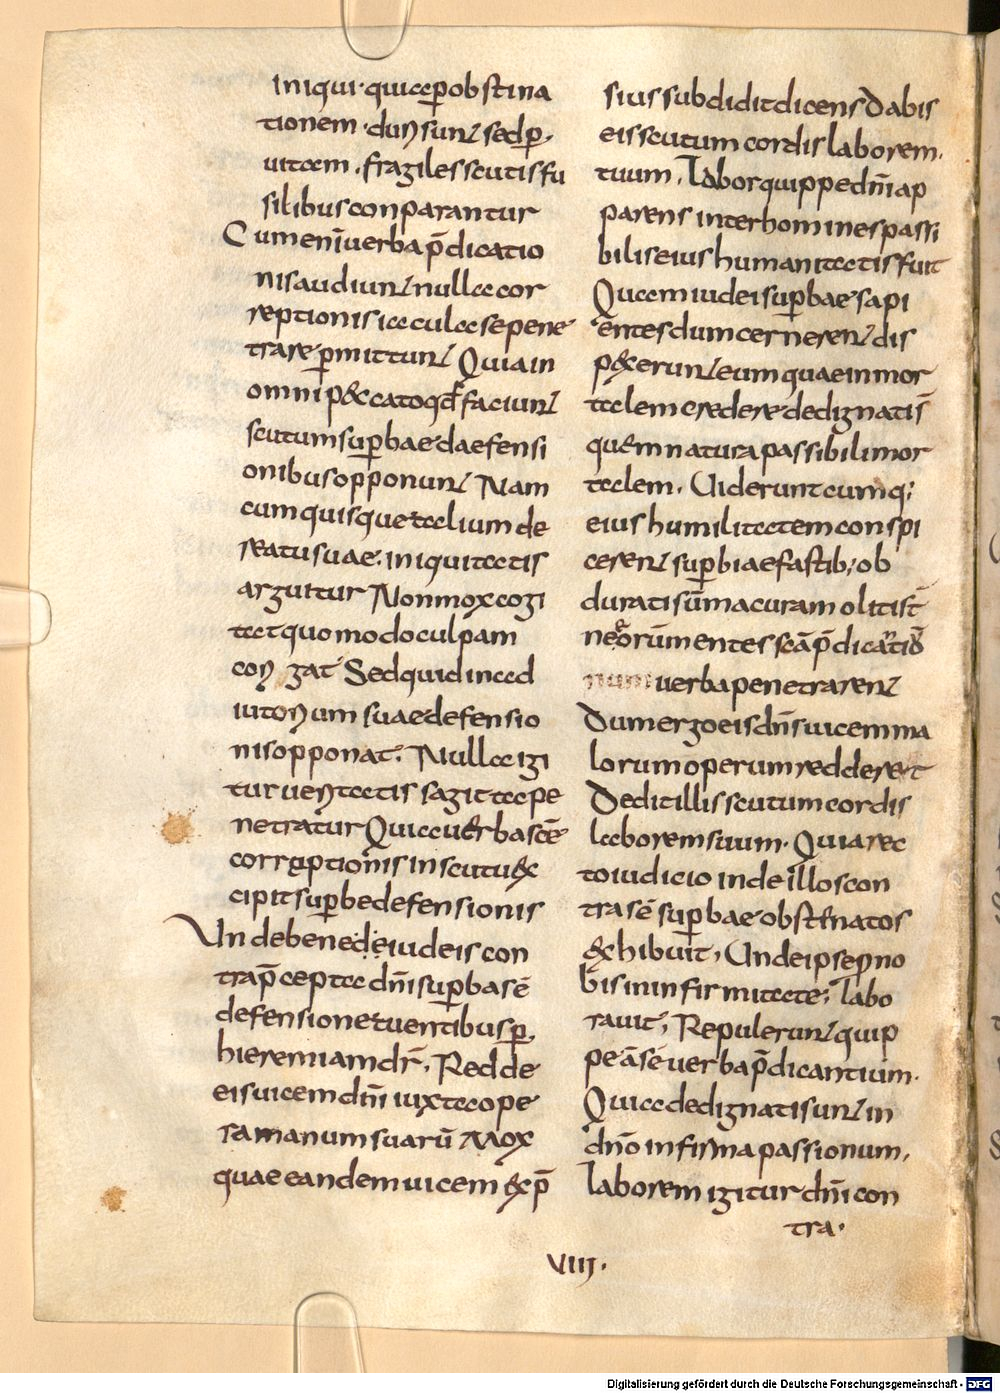 iniqui· quia p̲ obstina
tionem· duri sunt sed p̲
uitam· fragiles scutis fu
silibus conparantur
Cum enī uerba p̄dicatio
nis audiunt nulla cor
reptionis iacula se pene
trare p̲mittunt Quia in
omni peccato qđ faciunt
scutum sup̲bae daefensi
onibus opponunt Nam
cum quisque talium de
reatu suae iniquitatis
arguitur Non mox cogi
tat quomodo culpam
corrigat Sed quid in ad
iutorium suae defensio
nis opponat· Nulla igi
tur ueritatis sagitta pe
netratur Quia uerba scē
correptionis in scutu ex
cipit sup̲be defensionis
Unde bene de iudeis con
tra p̄cepta dn̄i sup̲ba sē
defensione tuentibus p̲
hieremiam dr̄· Redde
eis uicem dn̄i iuxta ope
ra manum suarū Mox
quae eandem uicem exp̄
sius subdidit dicens Dabis
eis scutum cordis laborem·
tuum· Labor quippe dn̄i ap
parens inter homines passi
bilis eius humanitatis fuit
Quem iudei sup̲bae sapi
entes dum cernerent dis
pexerunt eum quae in mor
talem credere dedignati s̄
quem natura passibili mor
talem· Uiderunt cumq;
eius humilitatem conspi
cerent sup̲biae fastib; ob
durati sūma curam oliti s̄t
ne eorūm mentes scā p̄dicatio
num uerba penetrarent
Dum ergo eis dn̄s uicem ma
lorum operum redderet
Dedit illis scutum cordis
laborem suum· Quia rec
to iudicio inde illos con
tra sē sup̲bae obstinatos
exhibuit, Unde ipse p̲ no
bis in infirmitate; labo
rauit; Repulerunt quip
pe ā sē uerba p̄dicantium·
Quia dedignati sunt in
dn̄o infirma passionum,
Laborem igitur dn̄i con
tra·
VIII·
Digitalisierung gefördert durch die Deutsche Forschungsgemeinschaft - DFG